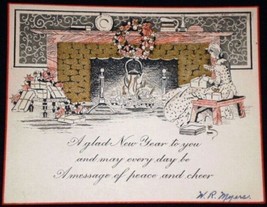 A glad New Year to you
and may every day be
A message of peace and cheer
W. R. Myers